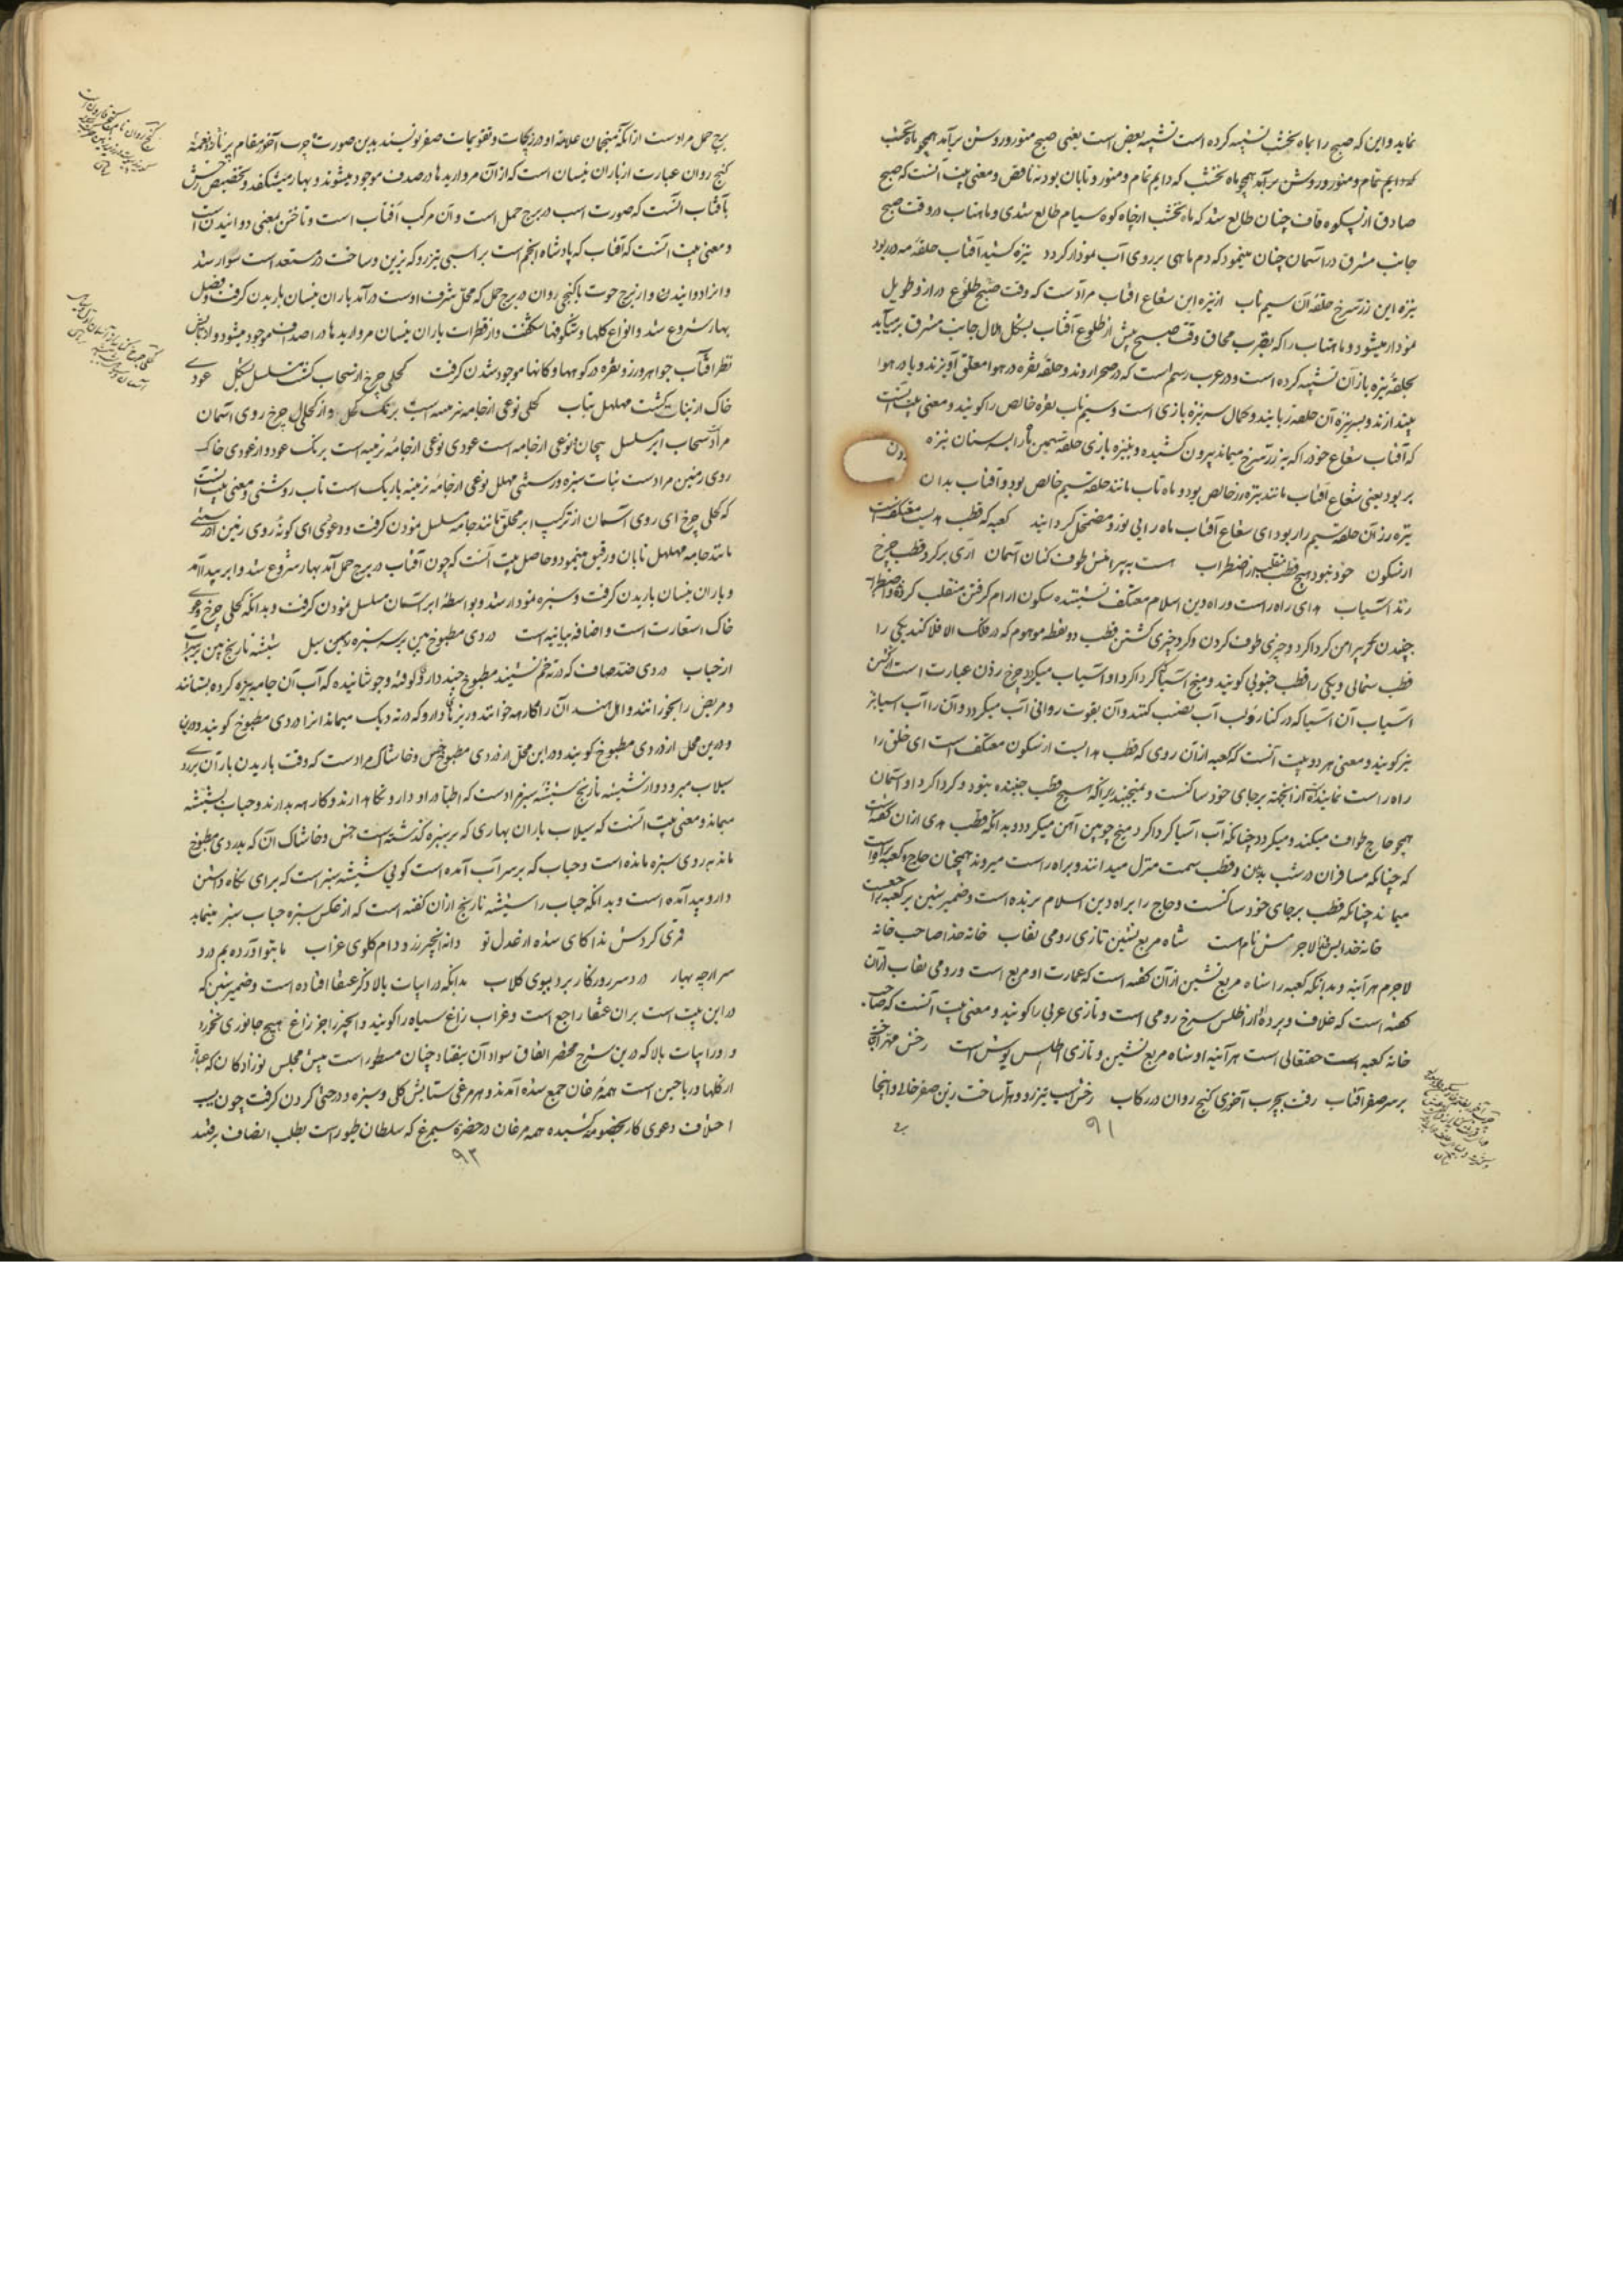 نماید و این که صبح را بماه نخشب تشبیه کرده است تشبیه بعض است یعنی صبح منور و روشن برآید همچو ماه نخشب
که دایم تمام و منور و روشن برآید همچو ماه نخشب که دایم تمام و منور و تابان بود نه ناقص و معنی بیت آنست که صبح
صادق از پس کوه قاف چنان طالع شد که ماه نخشب از چاه کوه سیام طالع شدی و ماهتاب در وقت صبح
جانب مشرق در آسمان چنان مینمود که دم ماهی بر روی آب نمودار گردد نیزه کشید آفتاب حلقهٔ مه در ربود
نیزه این زر سرخ حلقهٔ آن سیم ناب از نیزه این شعاع آفتاب مرادست که وقت صبح طلوع دراز و طویل
نمودار میشود و ماهتاب را که بقرب محاق وقت صبح پیش از طلوع آفتاب بشکل هلال جانب مشرق برمیآید
بحلقهٔ نیزه بازان تشبیه کرده است و در عرب رسم است که در صحرا روند و حلقهٔ نقره در هوا معلق آویزند و یا در هوا
بیندازند و بسر نیزه آن حلقه ربایند و کمال سر نیزه بازی است و سیم ناب نقره خالص را گویند و معنی بیت آنست
که آفتاب شعاع خود را که بزر سرخ میماند بیرون کشیده و بنیزه بازی حلقه سیمین ماه را بسنان نیزه
بربود یعنی شعاع آفتاب مانند نیزه زر خالص بود و ماه تاب مانند حلقه سیم خالص بود و آفتاب بدان
نیزه زر آن حلقه سیم را ربود ای شعاع آفتاب ماه را بی نور و مضمحل گردانید کعبه که قطب هدیست معتکفست
از سکون خود نبود هیچ قطب منقلب از اضطراب هست به پیرامنش طوف کنان آسمان آری بر گرد قطب چرخ
زند آسیاب هدای راه راست و راه دین اسلام معتکف نشیننده سکون آرام گرفتن منقلب گردنده اضطراب
جنبیدن پیرامن گرداگرد چیزی طوف کردن و گرد چیزی گشتن قطب دو نقطه موهوم که در فلک الافلاکند یکی را
قطب شمالی و یکی را قطب جنوبی گویند و میخ آسیا که گرداگرد او آسیاب میگردد چرخ زدن عبارت است از گشتن
آسیاب آن آسیا که در کنار رود لب آب نصب کنند و آن بقوت روانی آب میگردد و آن را آب آسیا نیز
نیز گویند و معنی هر دو بیت آنست که کعبه از آن روی که قطب هداست از سکون معتکف است ای خلق را
راه راست نمایند از آنجهت بر جای خود ساکنست و نمیجنبد زیراکه هیچ قطب جنبنده نبود و گرداگرد او آسمان
همچو حاج طواف میکند و میگردد چنانکه آب آسیا گرداگرد میخ چوبین آهن میگردد و بدانکه قطب هدی ازان گفته است
که چنانکه مسافران در شب بدین قطب سمت منزل میدانند و براه راست میروند همچنان حاج کعبه براه راست
میمانند چنانکه قطب بر جای خود ساکنست و حاج را براه دین اسلام برنده است و ضمیر شین بر کعبه راجعست
خانه خدایش خدا لاجرمش نام هست شاه مربع نشین تازی رومی نقاب خانه خدا صاحب خانه
لاجرم هر آینه و بدانکه کعبه را شاه مربع نشین از آن گفته است که عمارت او مربع است و رومی نقاب ازان
گفته است که غلاف و پرده او از اطلس سرخ رومی است و تازی عربی را گویند و معنی بیت آنست که صاحب
خانه کعبه هست حقتعالی است هر آینه او شاه مربع نشین و تازی اطلس پوش است رخش بهرا بتاخت
بر سر صفر آفتاب رفت بچرب آخوری گنج روان در رکاب رخش اسب تیزرو و هرا ساخت زین صفر خالی و اینجا
برج
۹۱
برج حمل مرادست ازانکه منجمان علامت او در زیجات و تقویمات صفر نویسند بدین صورت ۰ چرب آخور مقام پر ناز و نعمت
گنج روان عبارت از باران نیسان است که از آن مرواریدها در صدف موجود میشوند و بهار میشکفد و تخصیص رخش
بآفتاب آنست که صورت اسب در برج حمل است و آن مرکب آفتاب است و تاختن بمعنی دوانیدن است
و معنی بیت آنست که آفتاب که پادشاه انجم است بر اسبی تیزرو که بزین و ساخت در مستعد است سوار شد
و آنرا دوانیدن و از برج حوت با گنجی روان در برج حمل که محل شرف اوست درآمد باران نیسان باریدن گرفت و فصل
بهار شروع شد و انواع گلها و شکوفها شکفت و از قطرات باران نیسان مرواریدها در اصداف موجود میشود و از تابش
نظر آفتاب جواهر و زر و نقره در کوهها و کانها موجود شدن گرفت کحلی چرخ از سحاب گشت مسلسل بشکل عودی
خاک از نبات گشت مهلهل بتاب کحلی نوعی از جامه نرمست برنگ کحل و از کحلی چرخ روی آسمان
مراد سحاب ابر مسلسل پیچان نوعی از جامه است عودی نوعی از جامه نرمینه است برنگ عود و از عودی خاک
روی زمین مرادست نبات سبزه و رستنی مهلهل نوعی از جامه نرمینه باریک است تاب روشنی و معنی بیت آنست
که کحلی چرخ ای روی آسمان از ترکیب ابر معلق مانند جامه مسلسل نمودن گرفت و عودی ای گونه روی زمین از رستنی
مانند جامه مهلهل تابان و رقیق مینمود و حاصل بیت آنست که چون آفتاب در برج حمل آمد بهار شروع شد و ابر پدید آمد
و باران نیسان باریدن گرفت و سبزه نمودار شد و بواسطهٔ ابر آسمان مسلسل نمودن گرفت و بدانکه کحلی چرخ و عودی
خاک استعارت است و اضافه بیانیه است دردی مطبوخ بین بر سر سبزه ز سیل شیشه نارنج بین بر سر آب
از حباب دردی ضد صاف که در ته خم نشیند مطبوخ چند دارو کوفته و جوشانیده که آب آن جامه بیزه کرده بستانند
و مریض را بخورانند و اهل هند آن را کارهه خوانند و ریزهای دارو که در ته دیگ میماند آنرا دردی مطبوخ گویند و درین
و درین محل از دردی مطبوخ گویند و در این محل از دردی مطبوخ خس و خاشاک مرادست که وقت باریدن باران بر روی
سیلاب میرود و از شیشه نارنج شیشه سبز مرادست که اطبا در او دارو نگاه دارند و کارهه بدارند و حباب بشیشه
میماند و معنی بیت آنست که سیلاب باران بهاری که بر سبزه گذشته است خس و خاشاک آن که بدردی مطبوخ
ماند بر روی سبزه مانده است و حباب که بر سر آب آمده است گویی شیشه سبز است که برای نگاه داشتن
دارو پیدا آمده است و بدانکه حباب را شیشه نارنج ازان گفته است که از عکس سبزه حباب سبز مینماید
قمری کردش ندا کای شده از عدل تو دانه انجیر رز دام گلوی غراب ما بتو آورده‌یم درد
سر ارچه بهار درد سر روزگار برد ببوی گلاب بدانکه در ابیات بالا ذکر عنقا افتاده است و ضمیر شین که
در این بیت است بران عنقا راجع است و غراب زاغ سیاه را گویند و انجیر را جز زاغ هیچ جانوری نخورد
و در ابیات بالا که درین شرح مختصر اتفاق سواد آن نیفتاد چنان مسطور است پیش مجلس نوزادگان که عبارت
از گلها و ریاحین است همه مرغان جمع شده آمدند و هر مرغی ستایش گلی و سبزه و درختی کردن گرفت چون بسبب
اختلاف دعوی کار بخصومت کشیده همه مرغان در حضرة سیمرغ که سلطان طیور است بطلب انصاف برفتند
۹۲